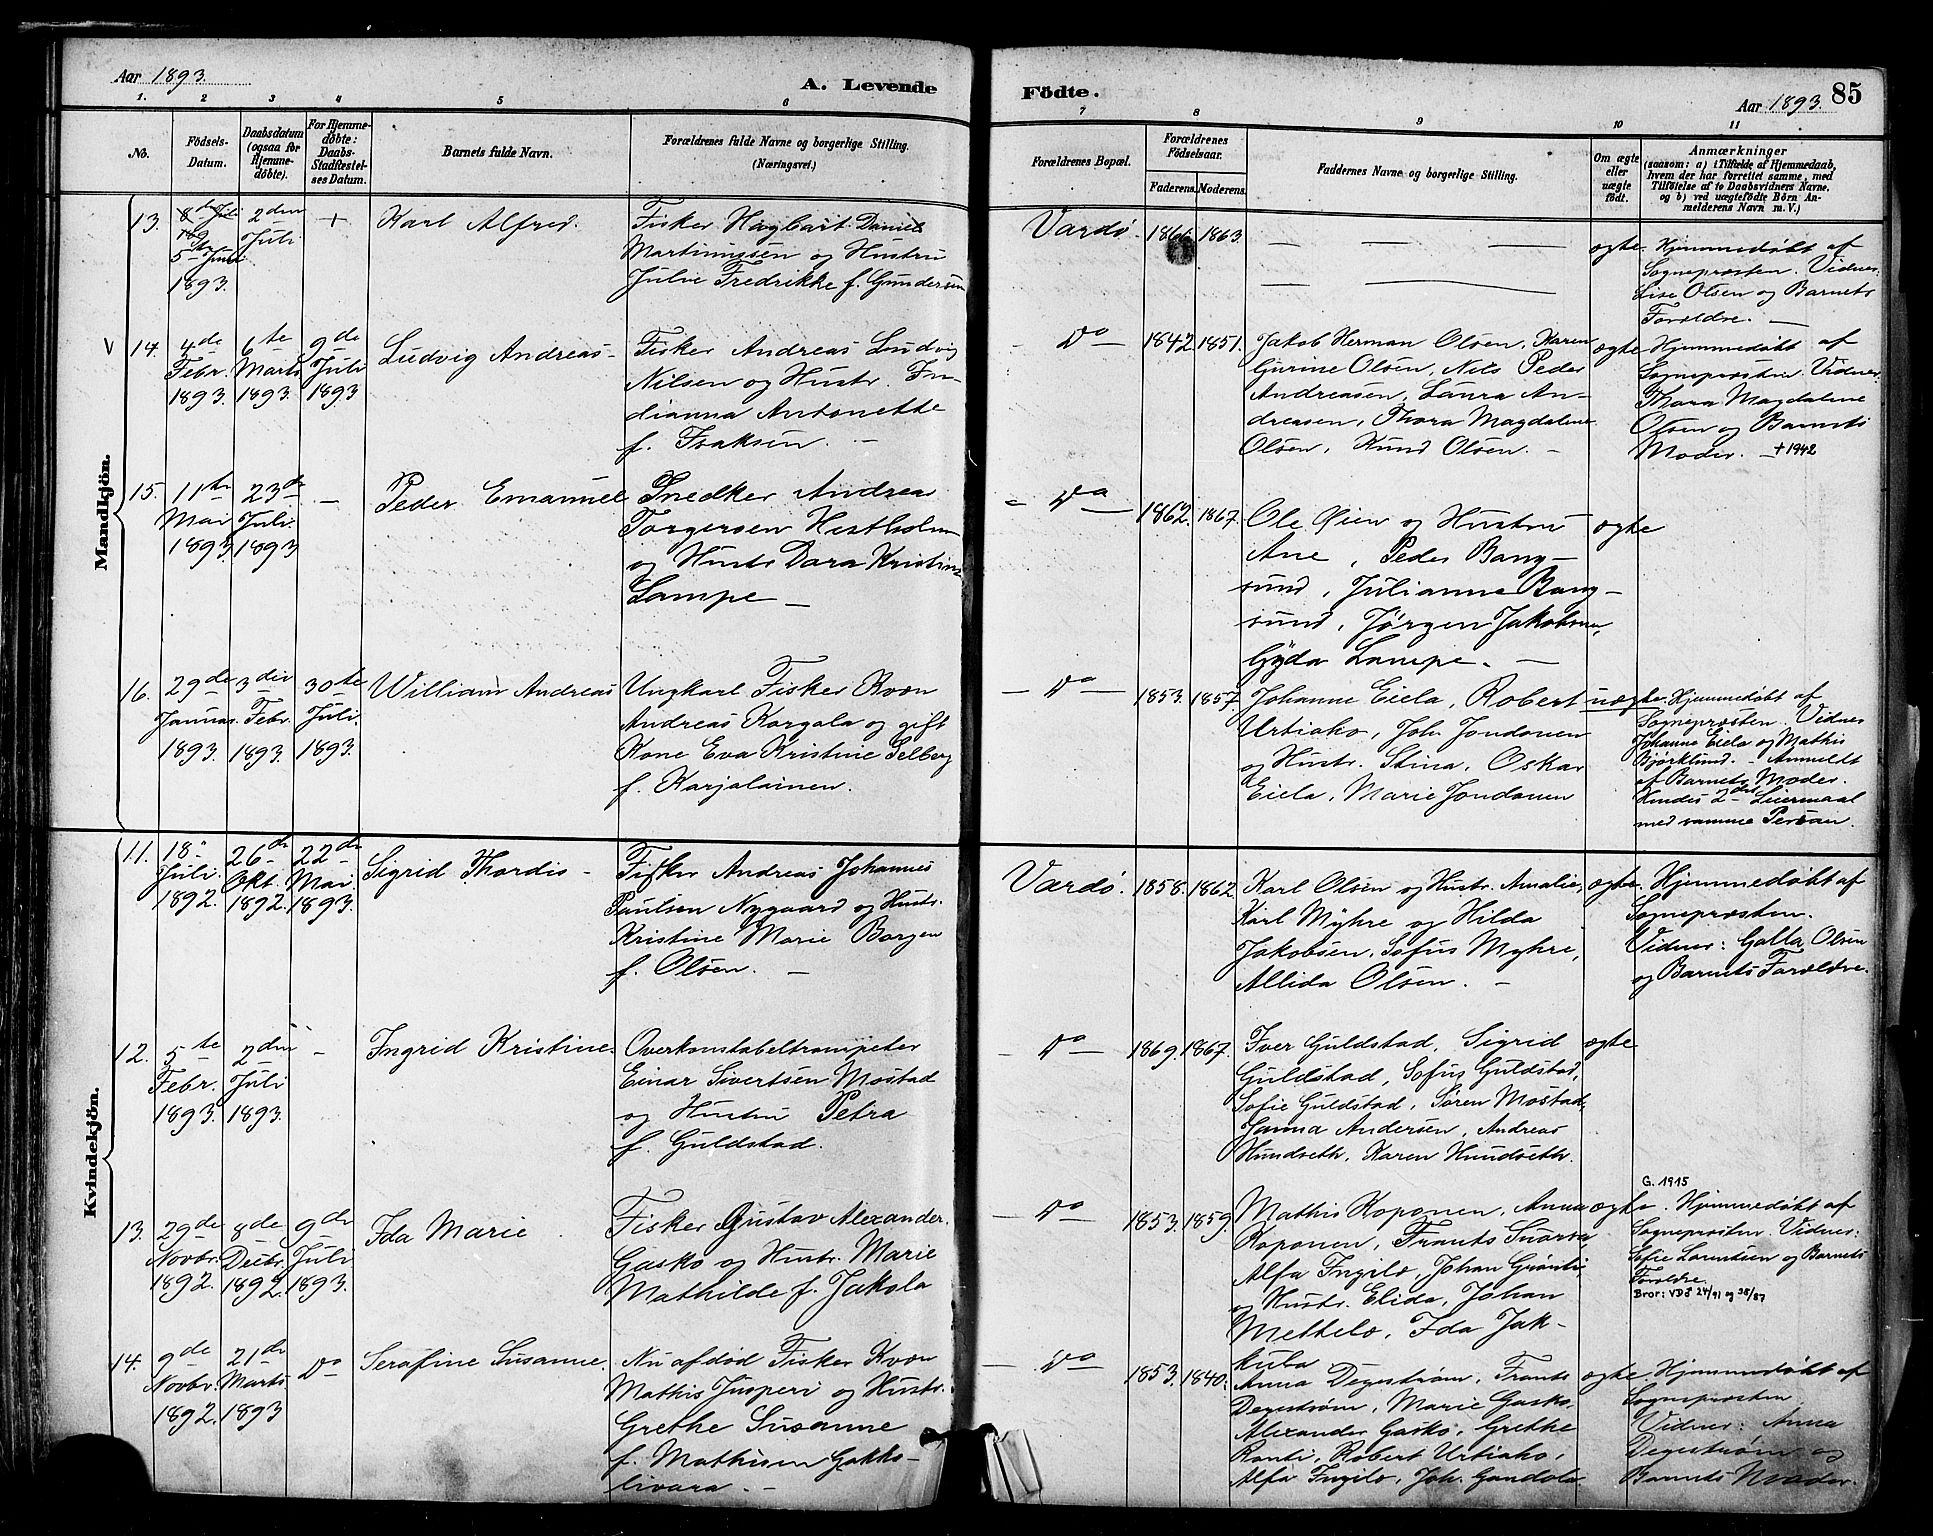 Aar 1893.
A. Levende
1. 2 3 4 5 6
No.
Födsels-
Datum.
Daabsdatum
(ogsaa for
Hjemme-
døbte).
For Hjemme-
døbte:
Daabs-
Stadfæstel-
ses Datum.
Barnets fulde Navn.
Forældrenes fulde Navne og borgerlige Stilling.
(Næringsvei.)
Födte.
Aar 1893. 85
7 8 9 10 11
Forældrenes Bopæl.
Forældrenes
Födselsaar.
Faderens. Moderens.
Faddernes Navne og borgerlige Stilling.
Om ægte
eller
uægte
født.
Anmærkninger
(saasom: a) i Tilfælde af Hjemmedaab,
hvem der har forrettet samme, med
Tilføielse af to Daabsvidners Navne,
og b) ved uægtefødte Börn An-
melderens Navn m. V.)
Mandkjön.
13.
5te Juni
1893.
2den
Juli
+
Karl Alfred.
Fisker Hagbart Daniel
Martinussen og Hustru
Julie Fredrikke f. Gundersen
Vardø.
1866. 1863.
— — —
— —
ægte.
Hjemmedøbt af
Sognepresten. Vidner:
Lise Olsen og Barnets
Forældre. —
V 14.
4de
Febr.
1893.
6te
Marts
1893.
9de
Juli
1893
Ludvig Andreas-
Fisker Andreas Ludvig
Nilsen og Hustr. In-
dianna Antonette
f. Isaksen. —
- Do —
1842. 1851.
Jakob Herman Olsen, Karen
Gurine Olsen, Nils Peder
Andreasen, Laura An-
dreasen, Thora Magdalene
Olsen, Knud Olsen. —
ægte
Hjemmedøbt af
Sognepresten. Vidner:
Thora Magdalene
Olsen og Barnets
Moder. — +1942
15.
11te
Mai
1893.
23de
Juli.
1893
—
Peder Emanuel
Snedker Andreas
Torgersen Hestholm
og Hustr. Dara Kristine
Lampe —
- Do —
1862. 1867.
Ole Øien og Hustru
Ane, Peder Bang-
sund, Julianne Bang-
sund, Jørgen Jakobsen,
Gyda Lampe. —
ægte
16.
29de
Januar.
1893.
3die
Febr.
1893.
30te
Juli.
1893.
William Andreas
Ungkarl Fisker Kvæn
Andreas Korgala og gift
Kone Eva Kristine Selberg
f. Karjalainen.
— Do —
1853. 1857
Johanne Eiela, Robert
Urtiako, Joh. Jondonen
og Hustr. Stina, Oskar
Eiela, Marie Jondonen
uægte.
Hjemmedøbt af
Sognepresten. Vidner
Johanne Eiela og Mathis
Bjørklund. — Anmeldt
af Barnets Moder.
Hendes 2det Leiermaal
med samme Person.
Kvindekjön.
11.
18.
Juli
1892.
26de
Okt.
1892.
22de
Mai
1893.
Sigrid Thordis -
Fisker Andreas Johannes
Paulsen Nygaard og Hustr.
Kristine Marie Borgen
f. Olsen. —
Vardø.
1858. 1862
Karl Olsen og Hustr. Amalie,
Karl Myhre og Hilda
Jakobsen, Sofus Myhre,
Allida Olsen. —
ægte.
Hjemmedøbt af
Sognepresten.
Vidner: Galla Olsen
og Barnets Forældre.
12.
5te
Febr.
1893.
2den
Juli
1893.
-
Ingrid Kristine.
Overkonstabeltrompeter
Einar Sivertsen Mostad
og Hustru Petra
f. Guldstad.
- Do —
1869. 1867.
Iver Guldstad, Sigrid
Guldstad, Sofus Guldstad,
Sofie Guldstad, Søren Mostad,
Janna Andersen, Andreas
Hundseth, Karen Hundseth.
ægte
13.
29de
Novbr.
1892.
8de
Decbr.
1892.
9de
Juli
1893.
Ida Marie.
Fisker Gustav Alexander
Gasko og Hustr. Marie
Mathilde f. Jakola
— Do —
1853. 1859.
Mathis Koponen, Anna
Koponen, Frants Snorsa,
Alfa Ingilæ, Johan
og Hustr. Elida, Johan
Mettelæ, Ida Jak-
kuba
ægte
G. 1915
Hjemmedøbt af
Sognepresten. Vidner:
Sofie Lorentsen og Barnets
Forældre.
Bror: VDø 24/91 og 38/87
14.
9de
Novbr.
1892.
21de
Marts
1893
Do
Serafine Susanne.
Nu afdød Fisker Kvæn
Mathis Jusperi og Hustr.
Grethe Susanne
f. Mathisen Gakko-
livara. —
— Do —
1853. 1840.
Anna Degestrøm, Frants
Degestrøm, Marie Gasko,
Alexander Gasko, Grethe
Ranti, Robert Urtiako,
Alfa Ingilæ, Joh. Gandola.
ægte.
Hjemmedøbt af
Sognepresten.
Vidner: Anna
Degestrøm og
Barnets Moder.